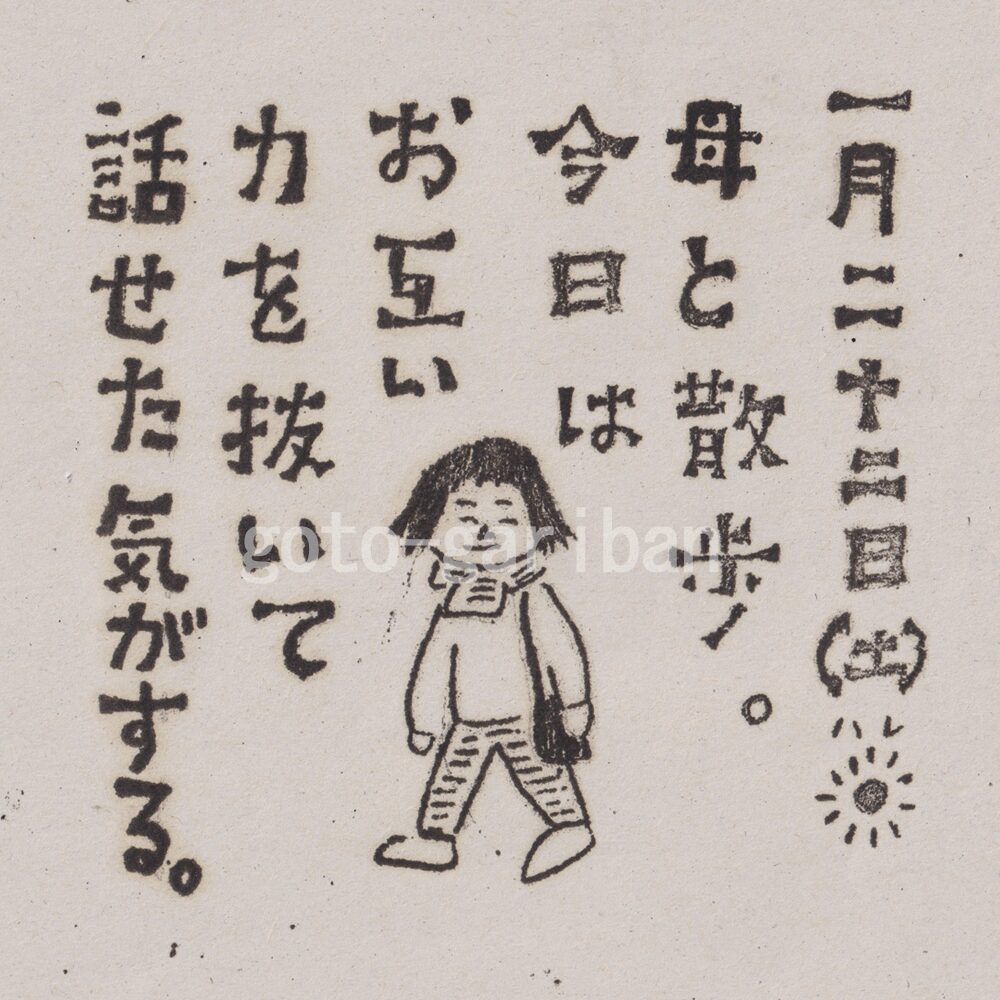 一月二十二日(土)ハレ
母と散歩。
今日は
お互い
力を抜いて
話せた気がする。
goto-gariban